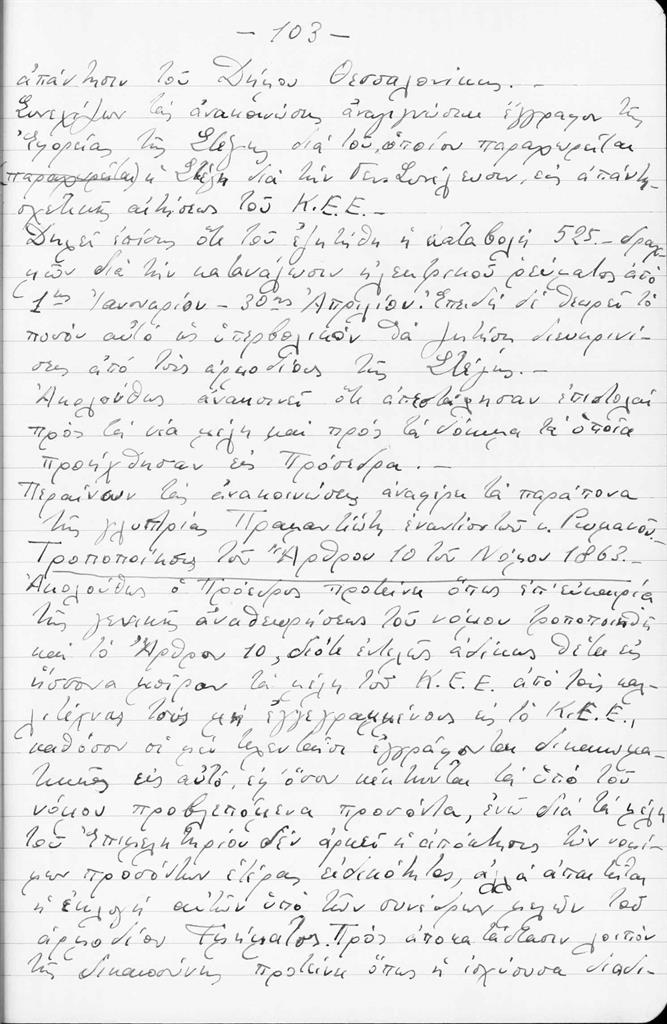 - 103 -
ἀπάντησιν τοῦ Δήμου Θεσσαλονίκης. -
Συνεχίζων τὰς ἀνακοινώσεις ἀναγιγνώσκει ἔγγραφον τῆς
Ἐφορείας τῆς Στέγης διὰ τοῦ ὁποίου παραχωρεῖται
(παραχωρεῖται) ἡ Στέγη διὰ τὴν Γεν. Συνέλευσιν, εἰς ἀπάντη-
σχετικῆς αἰτήσεως τοῦ Κ.Ε.Ε. -
ἐπίσης ὅτι τοῦ ἐζητήθη ἡ καταβολὴ 525.- δραχ-
μῶν διὰ τὴν κατανάλωσιν ἠλεκτρικοῦ ρεύματος ἀπὸ
1ης Ἰανουαρίου - 30ης Ἀπριλίου. Ἐπειδὴ δὲ θεωρεῖ τὸ
ποσὸν αὐτὸ ὡς ὑπερβολικὸν θὰ ζητήση διευκρινί-
σεις ἀπὸ τοὺς ἁρμοδίους τῆς Στέγης. -
Ἀκολούθως ἀνακοινεῖ ὅτι ἀπεστάλησαν ἐπιστολαὶ
πρὸς τὰ νέα μέλη καὶ πρὸς τὰ δόκιμα τὰ ὁποῖα
προήχθησαν εἰς Πρόσεδρα. -
Περαίνων τὰς ἀνακοινώσεις ἀναφέρει τὰ παράπονα
τῆς γλυπτρίας Πραμαντιώτη ἐναντίον τοῦ κ. Ρωμανοῦ. -
Τροποποίησις τοῦ Ἄρθρου 10 τοῦ Νόμου 1863. -
Ἀκολούθως ὁ Πρόεδρος προτείνει ὅπως ἐπ' εὐκαιρία
τῆς γενικῆς ἀναθεωρήσεως τοῦ νόμου τροποποιηθῆ
καὶ τὸ Ἄρθρον 10, διότι ἐντελῶς ἀδίκως θέτει εἰς
ἥσσονα μοῖραν τὰ μέλη τοῦ Κ.Ε.Ε. ἀπὸ τοὺς καλ-
λιτέχνας τοὺς μὴ ἐγγεγραμμένους εἰς τὸ Κ.Ε.Ε.,
καθόσον οἱ μὲν τελευταῖοι ἐγγράφονται δικαιωμα-
τικῶς εἰς αὐτό, ἐφ' ὅσον κέκτηνται τὰ ὑπὸ τοῦ
νόμου προβλεπόμενα προσόντα, ἐνῶ διὰ τὰ μέλη
τοῦ Ἐπιμελητηρίου δὲν ἀρκεῖ ἡ ἀπόκτησις τῶν νομί-
μων προσόντων ἑτέρας εἰδικότητος, ἀλλὰ ἀπαιτεῖται
ἡ ἐκλογὴ αὐτῶν ὑπὸ τῶν συνέδρων μελῶν τοῦ
ἁρμοδίου Τμήματος. Πρὸς ἀποκατάστασιν λοιπὸν
τῆς δικαιοσύνης προτείνει ὅπως ἡ ἰσχύουσα διαδι-